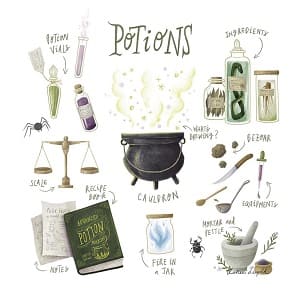 POTIONS
POTION
VIALS
INGREDIENTS
WHAT'S
BREWING?
BEZOAR
SCALE
RECIPE
BOOK
CAULDRON
EQUIPMENT
ADVANCED
POTION
MAKING
NOTES
FIRE IN
A JAR
MORTAR AND
PESTLE